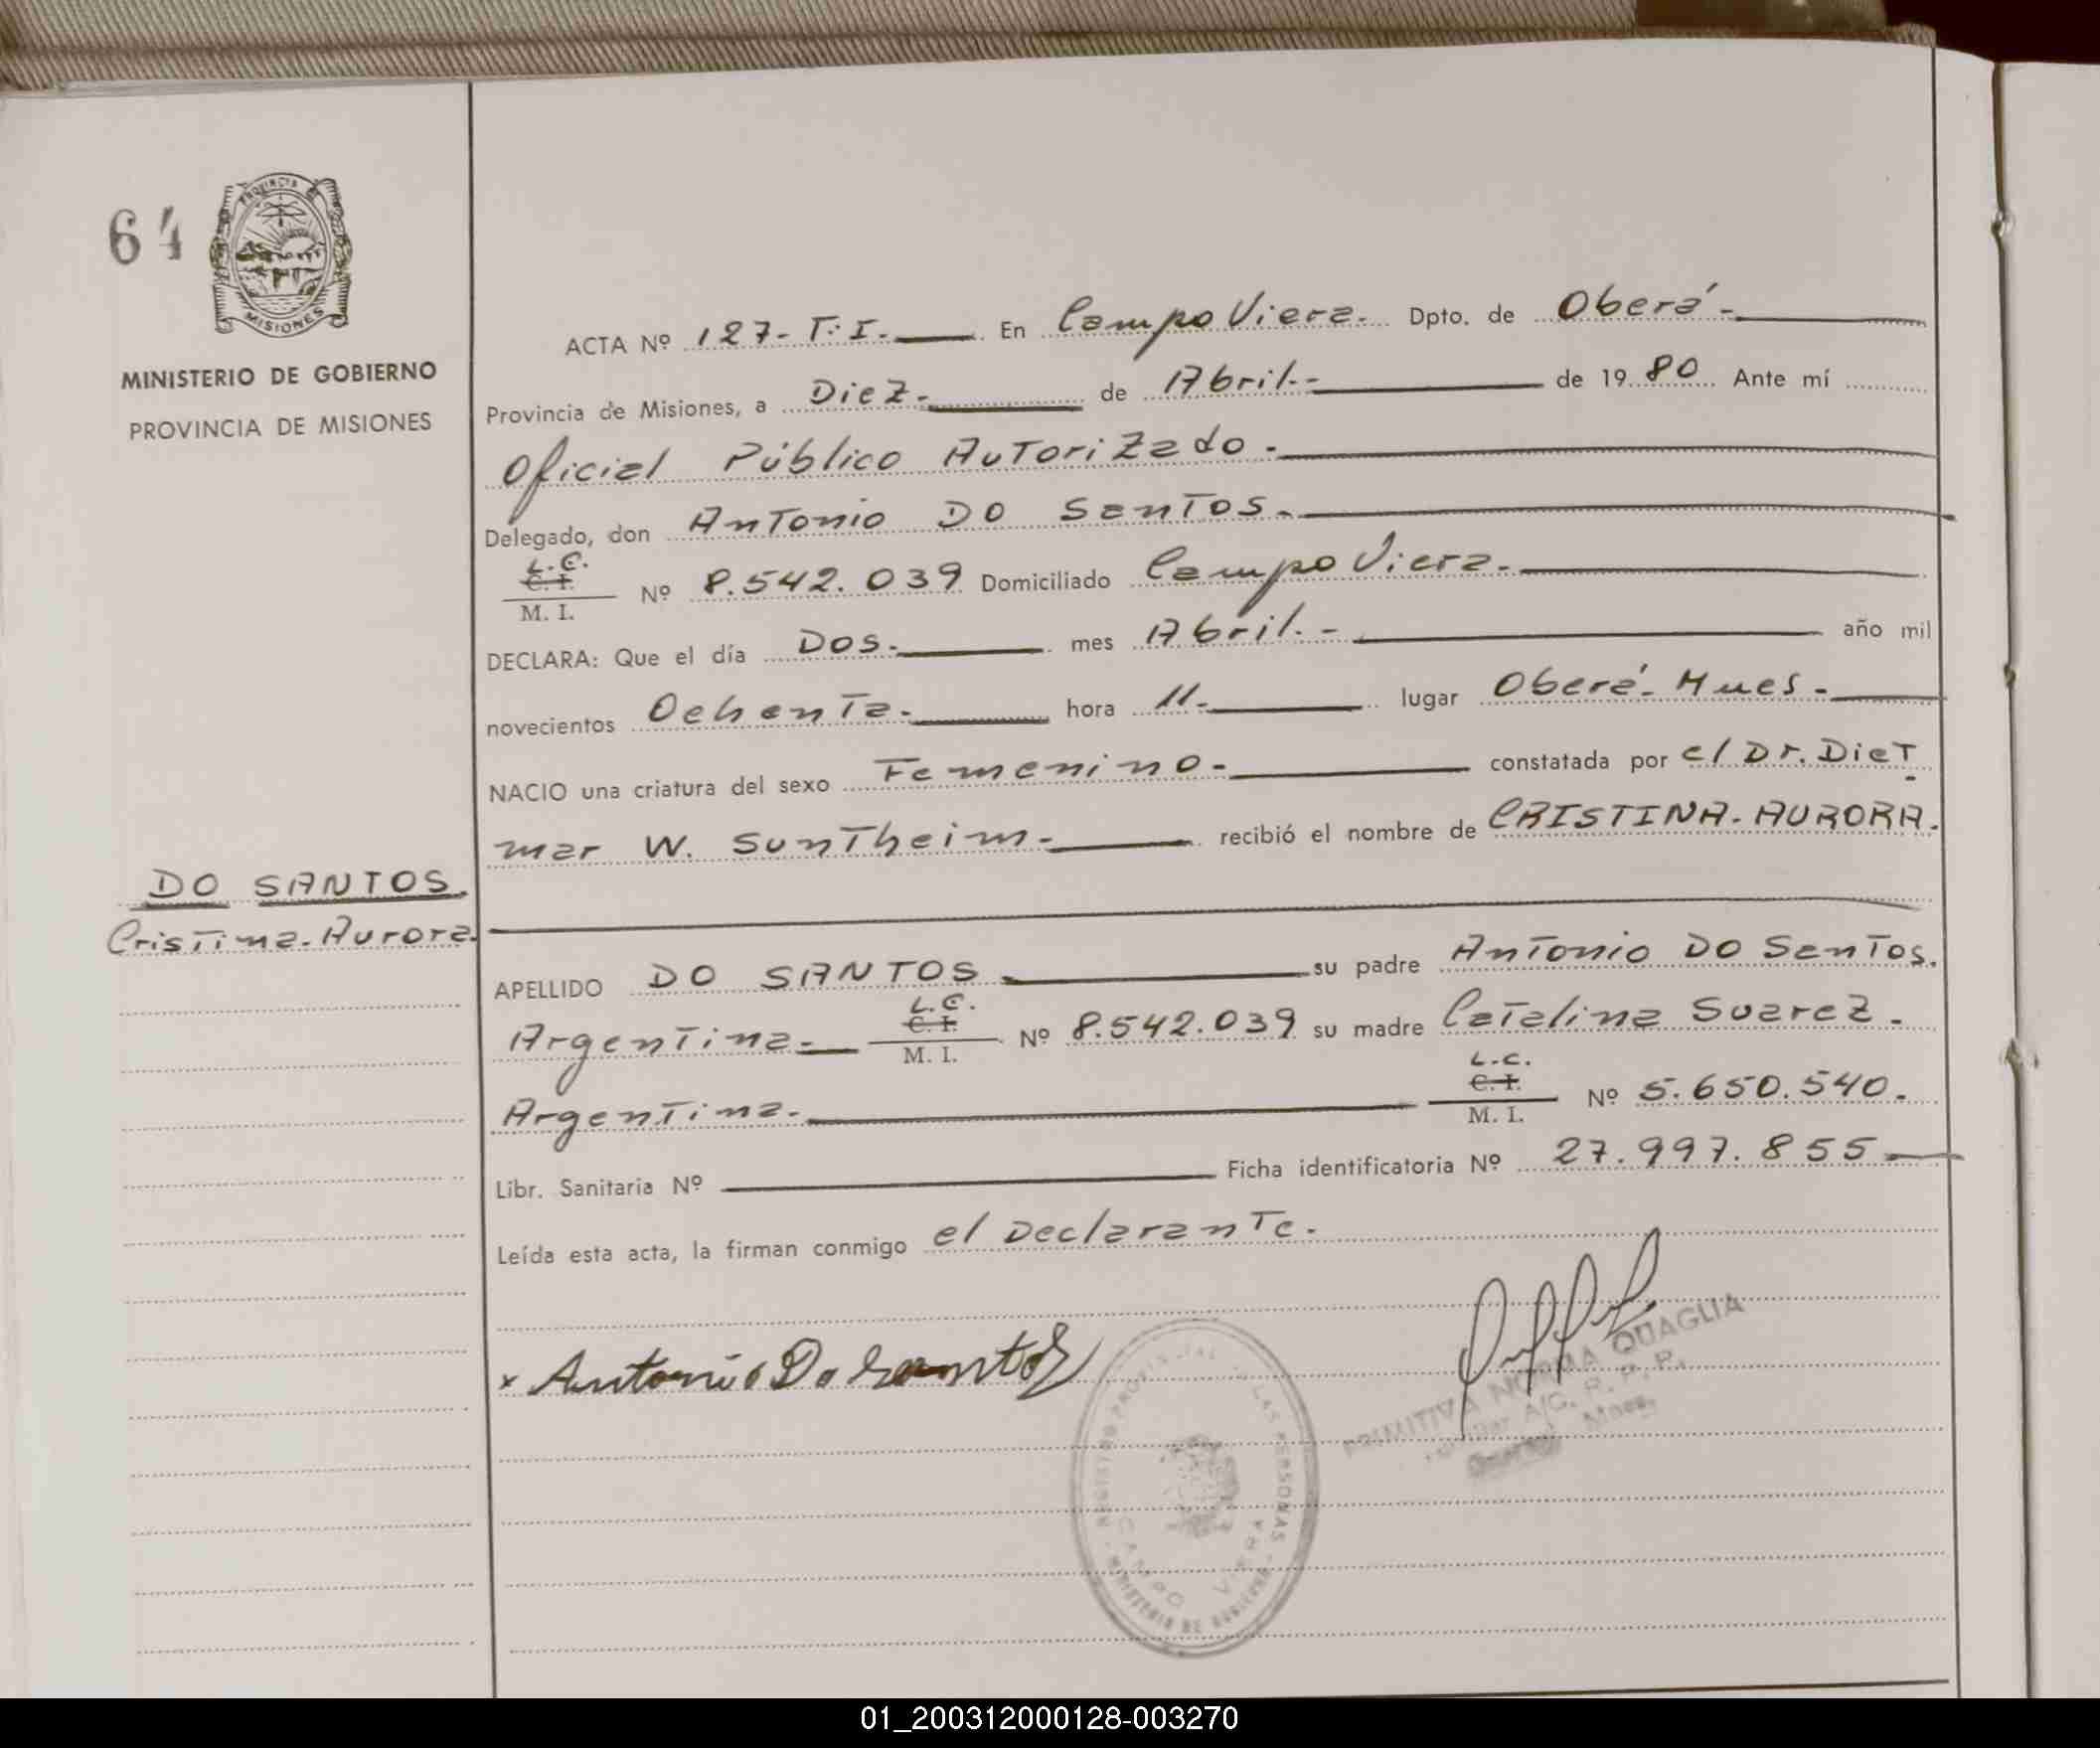 64
PROVINCIA
MISIONES
MINISTERIO DE GOBIERNO
PROVINCIA DE MISIONES
DO SANTOS.
Cristina-Aurora
ACTA Nº 127- T: I.- En Campo Viera.- Dpto. de Oberá.-
Provincia de Misiones, a Diez.- de Abril.- de 19 80 Ante mí
Oficial Público Autorizado.-
Delegado, don Antonio DO Santos.-
L.E.
C. I.
M. I. Nº 8.542.039 Domiciliado Campo Viera.-
DECLARA: Que el día Dos.- mes Abril.- año mil
novecientos Ochenta.- hora 11.- lugar Oberá- Mnes.-
NACIO una criatura del sexo Femenino.- constatada por el Dr. Diet
mar W. Suntheim.- recibió el nombre de CRISTINA-AURORA.
APELLIDO DO SANTOS.- su padre Antonio DO Santos.
L.E.
C. I.
Argentina.- M. I. Nº 8.542.039 su madre Catalina Suarez.-
L.C.
C. I.
Argentina.- M. I. Nº 5.650.540.
Libr. Sanitaria Nº Ficha identificatoria Nº 27.997.855
Leída esta acta, la firman conmigo el Declarante.
x Antonio Do Santos
PRIMITIVA NORMA QUAGLIA
A/C. R. P. P.
Mnes.
REGISTRO PROVINCIAL DE LAS PERSONAS
CAMPO VIERA
MINISTERIO DE GOBIERNO
01_200312000128-003270